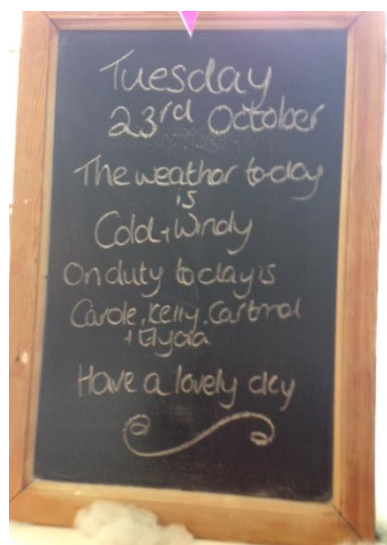 Tuesday
23rd October
The weather today
is
Cold + Windy
On duty today is
Carole, Kelly,
+
Have a lovely day